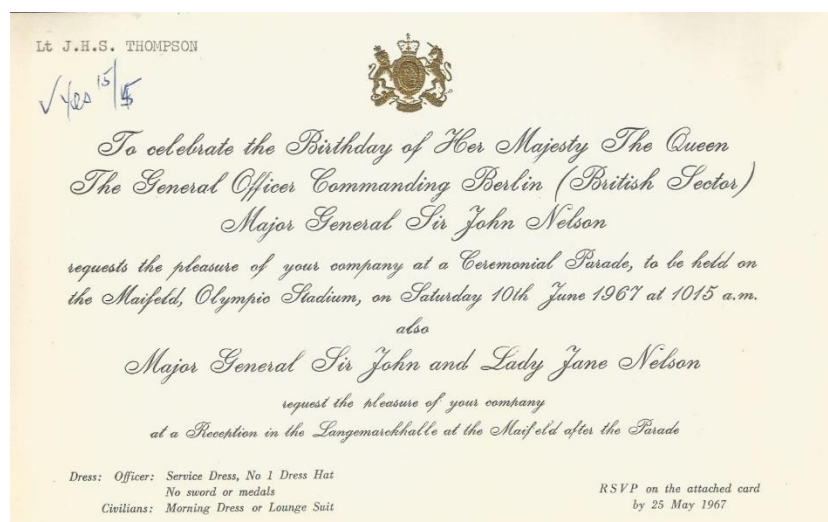 Lt J.H.S. THOMPSON
✓ Yes 15/5
To celebrate the Birthday of Her Majesty The Queen
The General Officer Commanding Berlin (British Sector)
Major General Sir John Nelson
requests the pleasure of your company at a Ceremonial Parade, to be held on
the Maifeld, Olympic Stadium, on Saturday 10th June 1967 at 1015 a.m.
also
Major General Sir John and Lady Jane Nelson
request the pleasure of your company
at a Reception in the Langemarckhalle at the Maifeld after the Parade
Dress: Officer: Service Dress, No 1 Dress Hat
No sword or medals
Civilians: Morning Dress or Lounge Suit
RSVP on the attached card
by 25 May 1967